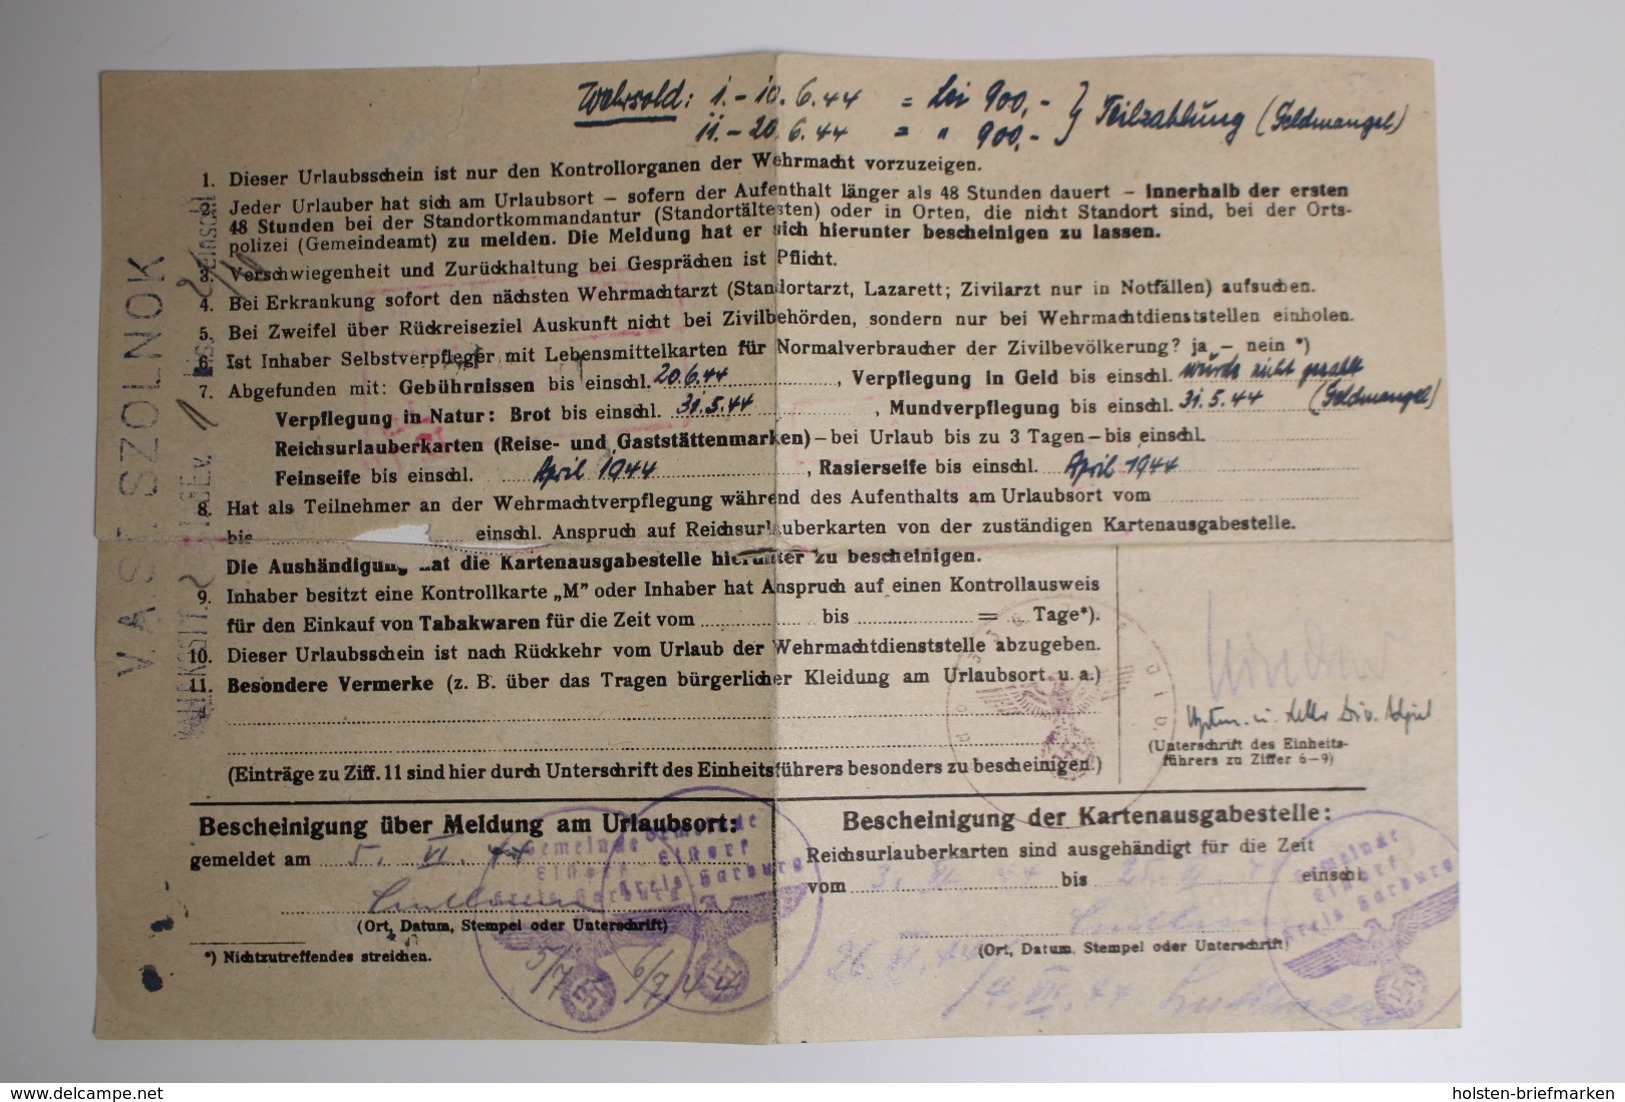 Wehrsold: 1.-10.6.44 = Lei 900,- } Teilzahlung (Geldmangel)
11.-20.6.44 = " 900,-
1. Dieser Urlaubsschein ist nur den Kontrollorganen der Wehrmacht vorzuzeigen.
2. Jeder Urlauber hat sich am Urlaubsort – sofern der Aufenthalt länger als 48 Stunden dauert – innerhalb der ersten
48 Stunden bei der Standortkommandantur (Standortältesten) oder in Orten, die nicht Standort sind, bei der Orts-
polizei (Gemeindeamt) zu melden. Die Meldung hat er sich hierunter bescheinigen zu lassen.
3. Verschwiegenheit und Zurückhaltung bei Gesprächen ist Pflicht.
4. Bei Erkrankung sofort den nächsten Wehrmachtarzt (Standortarzt, Lazarett; Zivilarzt nur in Notfällen) aufsuchen.
5. Bei Zweifel über Rückreiseziel Auskunft nicht bei Zivilbehörden, sondern nur bei Wehrmachtdienststellen einholen.
6. Ist Inhaber Selbstverpfleger mit Lebensmittelkarten für Normalverbraucher der Zivilbevölkerung? ja – nein *)
7. Abgefunden mit: Gebührnissen bis einschl. 20.6.44, Verpflegung in Geld bis einschl. wurde nicht gezahlt
Verpflegung in Natur: Brot bis einschl. 31.5.44, Mundverpflegung bis einschl. 31.5.44 (Geldmangel)
Reichsurlauberkarten (Reise- und Gaststättenmarken) – bei Urlaub bis zu 3 Tagen – bis einschl.
Feinseife bis einschl. April 1944, Rasierseife bis einschl. April 1944
8. Hat als Teilnehmer an der Wehrmachtverpflegung während des Aufenthalts am Urlaubsort vom
bis einschl. Anspruch auf Reichsurlauberkarten von der zuständigen Kartenausgabestelle.
Die Aushändigung hat die Kartenausgabestelle hierunter zu bescheinigen.
9. Inhaber besitzt eine Kontrollkarte „M" oder Inhaber hat Anspruch auf einen Kontrollausweis
für den Einkauf von Tabakwaren für die Zeit vom bis = Tage*).
10. Dieser Urlaubsschein ist nach Rückkehr vom Urlaub der Wehrmachtdienststelle abzugeben.
11. Besondere Vermerke (z. B. über das Tragen bürgerlicher Kleidung am Urlaubsort u. a.)
(Einträge zu Ziff. 11 sind hier durch Unterschrift des Einheitsführers besonders zu bescheinigen.)
(Unterschrift des Einheits-
führers zu Ziffer 6–9)
VAS. SZOLNOK
Bescheinigung über Meldung am Urlaubsort:
gemeldet am 5. VI. 44
(Ort, Datum, Stempel oder Unterschrift)
*) Nichtzutreffendes streichen.
5/7 6/7 44
Gemeinde
Eindorf
Kreis Harburg
Gemeinde
Eindorf
Kreis Harburg
Bescheinigung der Kartenausgabestelle:
Reichsurlauberkarten sind ausgehändigt für die Zeit
vom 3. VI. 44 bis einschl.
(Ort, Datum, Stempel oder Unterschrift)
26. VI. 44
Gemeinde
Eindorf
Kreis Harburg
delcampe.net
holsten-briefmarken